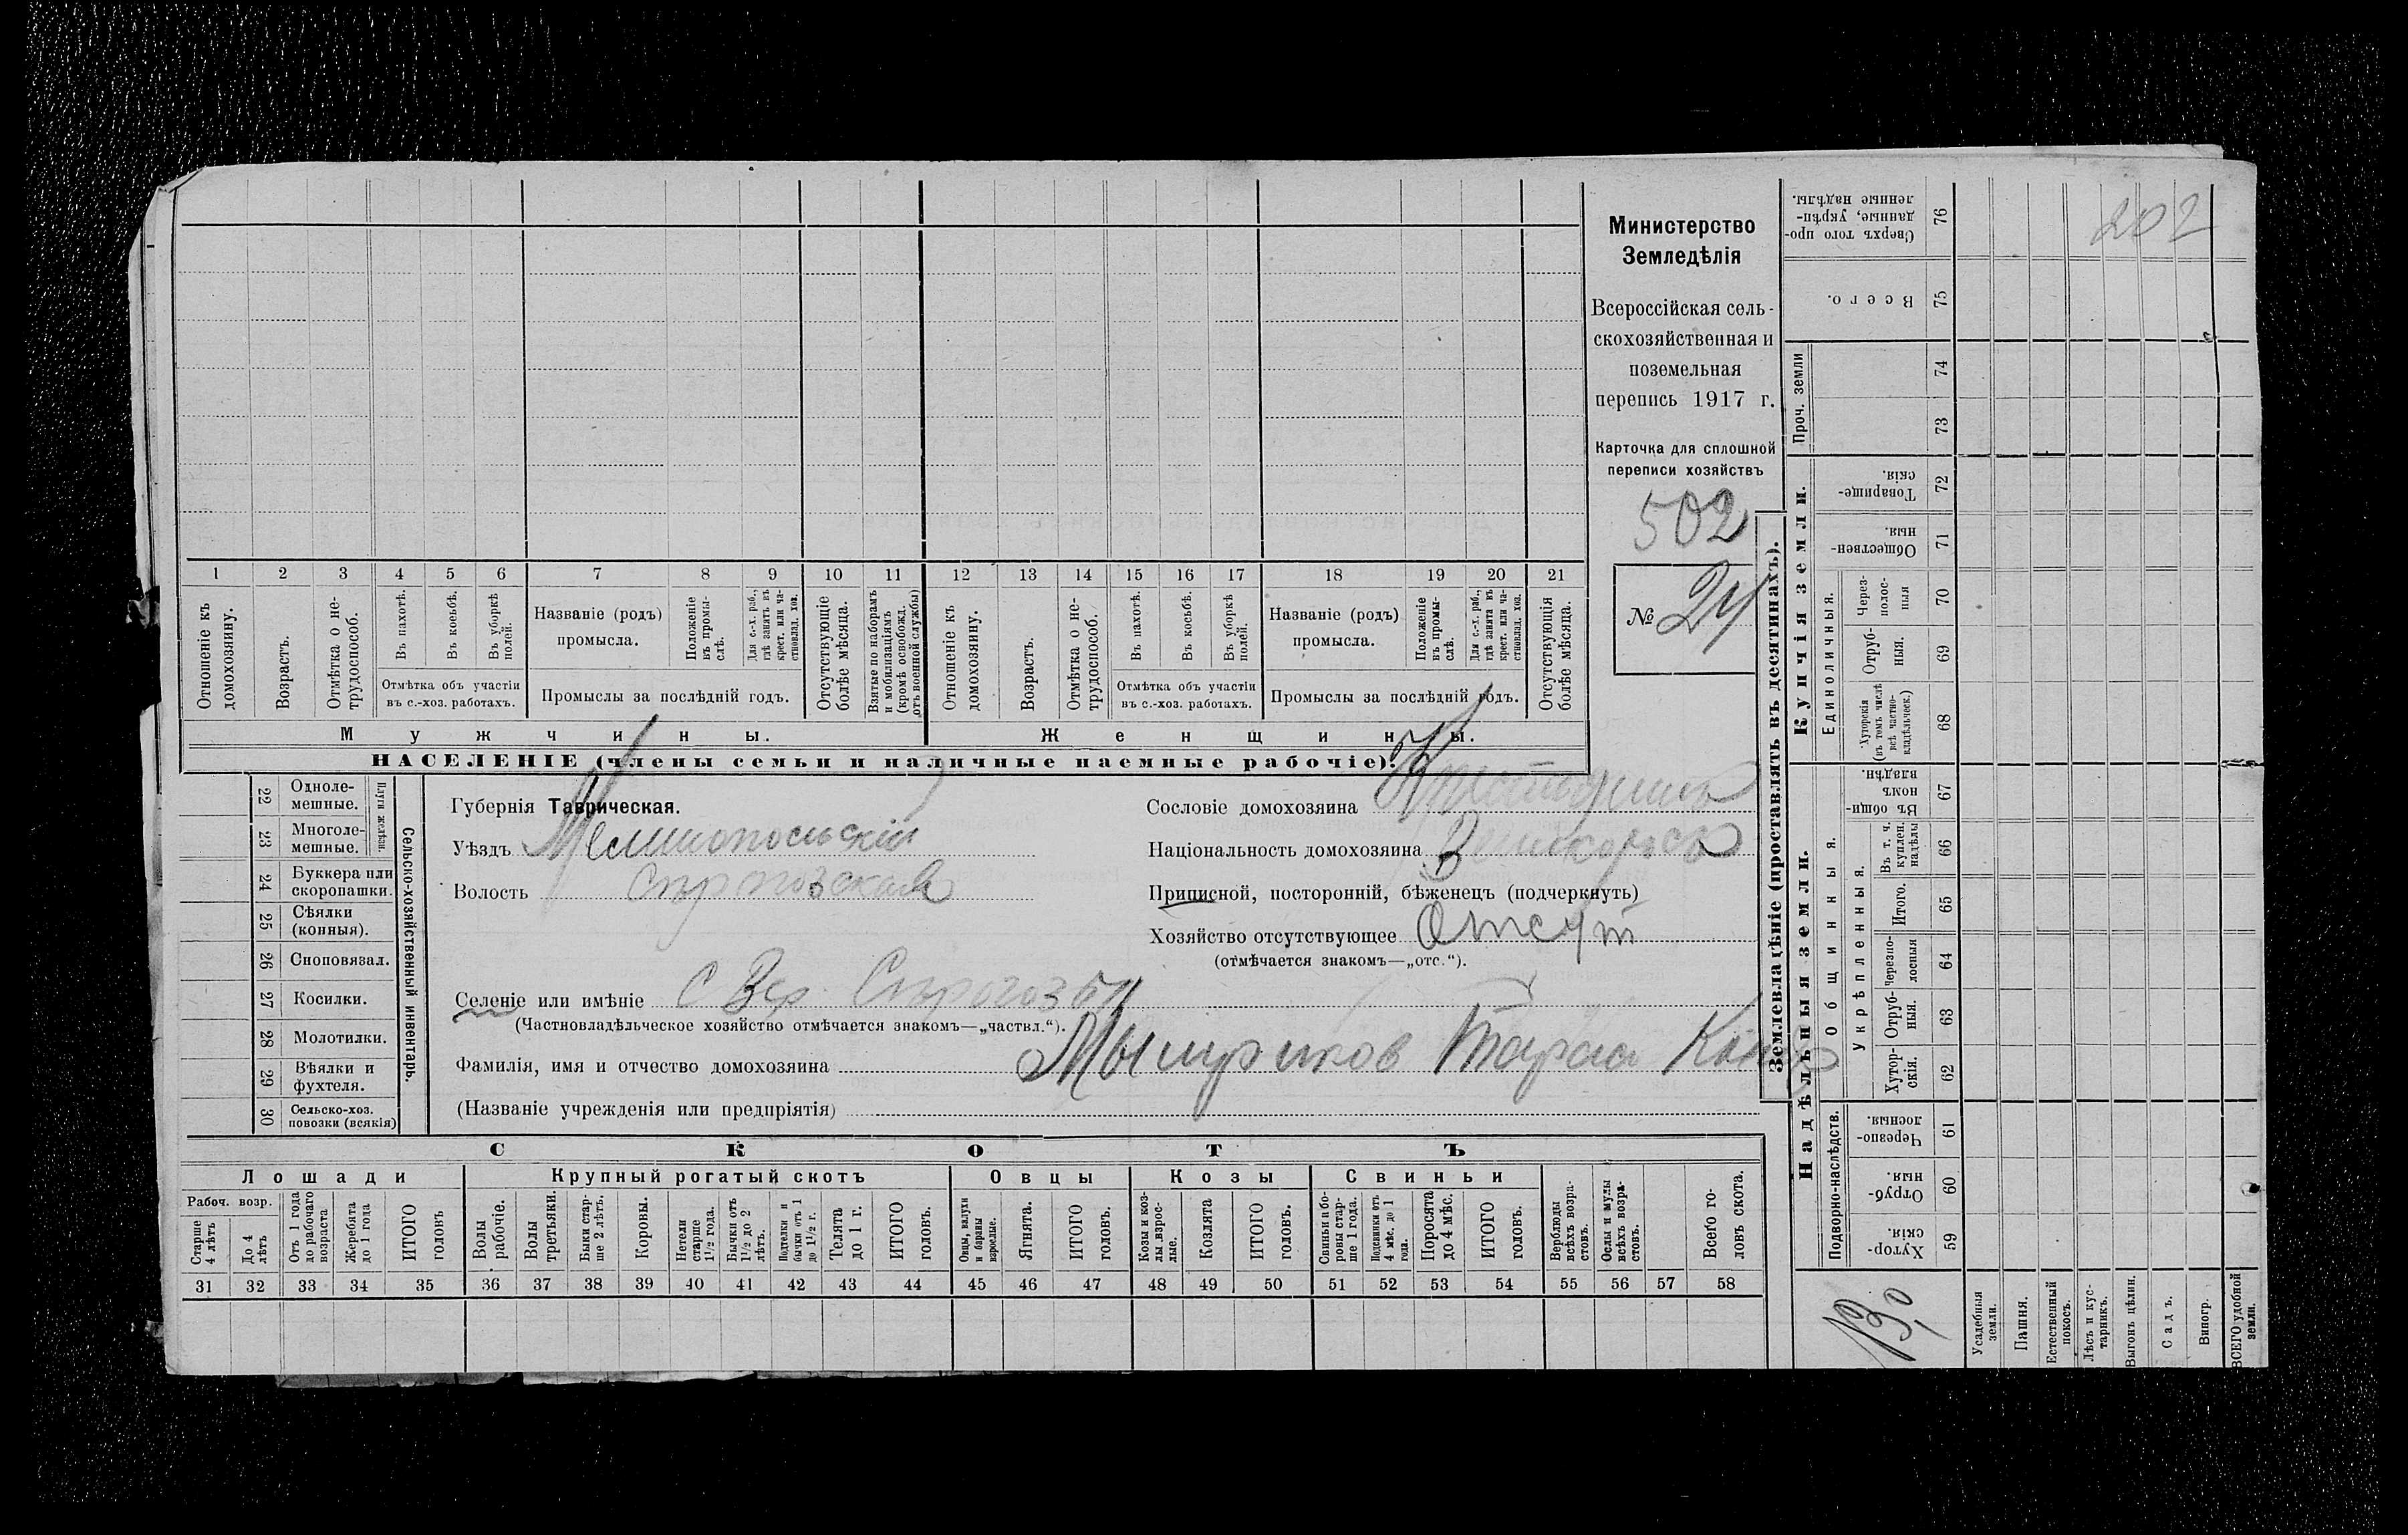 202
Министерство
Земледѣлія
Всероссійская сель-
скохозяйственная и
поземельная
перепись 1917 г.
Карточка для сплошной
переписи хозяйствъ
502
№ 24
1 2 3 4 5 6 7 8 9 10 11 12 13 14 15 16 17 18 19 20 21
Отношеніе къ домохозяину.
Возрастъ.
Отмѣтка о не-трудоспособ.
Въ пахотѣ.
Въ косьбѣ.
Въ уборкѣ полей.
Отмѣтка объ участіи
въ с.-хоз. работахъ.
Названіе (родъ)
промысла.
Положеніе въ промы-слѣ.
Для с.-х. раб., гдѣ занятъ въ крест. или ча-ствовлад. хоз.
Промыслы за послѣдній годъ.
Отсутствующіе болѣе мѣсяца.
Взятые по наборамъ и мобилизаціямъ (кромѣ освобожд. отъ военной службы)
Отношеніе къ домохозяину.
Возрастъ.
Отмѣтка о не-трудоспособ.
Въ пахотѣ.
Въ косьбѣ.
Въ уборкѣ полей.
Отмѣтка объ участіи
въ с.-хоз. работахъ.
Названіе (родъ)
промысла.
Положеніе въ промы-слѣ.
Для с.-х. раб., гдѣ занята въ крест. или ча-ствовлад. хоз.
Промыслы за послѣдній годъ.
Отсутствующія болѣе мѣсяца.
Мужчины.
Женщины.
НАСЕЛЕНІЕ (члены семьи и наличные наемные рабочіе).
Сельско-хозяйственный инвентарь.
Плуги желѣзн.
22 Одноле-мешные.
23 Многоле-мешные.
24 Буккера или скоропашки.
25 Сѣялки (конныя).
26 Сноповязал.
27 Косилки.
28 Молотилки.
29 Вѣялки и фухтеля.
30 Сельско-хоз. повозки (всякія)
Губернія Таврическая.
Уѣздъ Мелитопольскій
Волость
Сословіе домохозяина Крестьянинъ
Національность домохозяина Великороссъ
Приписной, посторонній, бѣженецъ (подчеркнуть)
Хозяйство отсутствующее Отсут
(отмѣчается знакомъ—„отс.“).
Селеніе или имѣніе с Вер. Сирогозы
(Частновладѣльческое хозяйство отмѣчается знакомъ—„частвл.“).
Фамилія, имя и отчество домохозяина Тарас
(Названіе учрежденія или предпріятія)
СКОТЪ
Лошади
Крупный рогатый скотъ
Овцы
Козы
Свиньи
Рабоч. возр.
Старше 4 лѣтъ
До 4 лѣтъ
Отъ 1 года до рабочаго возраста
Жеребята до 1 года
ИТОГО головъ
Волы рабочіе.
Волы третьяки.
Быки стар-ше 2 лѣтъ.
Коровы.
Нетели старше 1½ года.
Бычки отъ 1½ до 2 лѣтъ.
Подтелки и бычки отъ 1 до 1½ г.
Телята до 1 г.
ИТОГО головъ.
Овцы, валухи и бараны взрослые.
Ягнята.
ИТОГО головъ.
Козы и коз-лы взрос-лые.
Козлята
ИТОГО головъ.
Свиньи и бо-ровы стар-ше 1 года.
Подсвинки отъ 4 мѣс. до 1 года.
Поросята до 4 мѣс.
ИТОГО головъ.
Верблюды всѣхъ возра-стовъ.
Ослы и мулы всѣхъ возра-стовъ.
Всего го-ловъ скота.
31 32 33 34 35 36 37 38 39 40 41 42 43 44 45 46 47 48 49 50 51 52 53 54 55 56 57 58
Землевладѣніе (проставлять въ десятинахъ).
Надѣльныя земли.
Купчія земли.
Проч. земли
Подворно-наслѣдств.
Общинныя.
Укрѣпленныя.
Единоличныя.
Хутор-скія. 59
Отруб-ныя. 60
Черезпо-лосныя. 61
Хутор-скія. 62
Отруб-ныя. 63
Черезпо-лосныя 64
Итого. 65
Въ т. ч. куплен. надѣлы 66
Въ общи-номъ владѣн. 67
Хуторскія (въ томъ числѣ всѣ частно-владѣльческ.) 68
Отруб-ныя. 69
Через-полос-ныя 70
Обществен-ныя. 71
Товарище-скія. 72
73
74
Всего. 75
Сверхъ того про-данные, укрѣп-ленные надѣлы. 76
Усадебныя земли.
Пашня.
Естественный покосъ.
Лѣсъ и кус-тарникъ.
Выгонъ цѣлин.
Садъ.
Виногр.
ВСЕГО удобной земли.